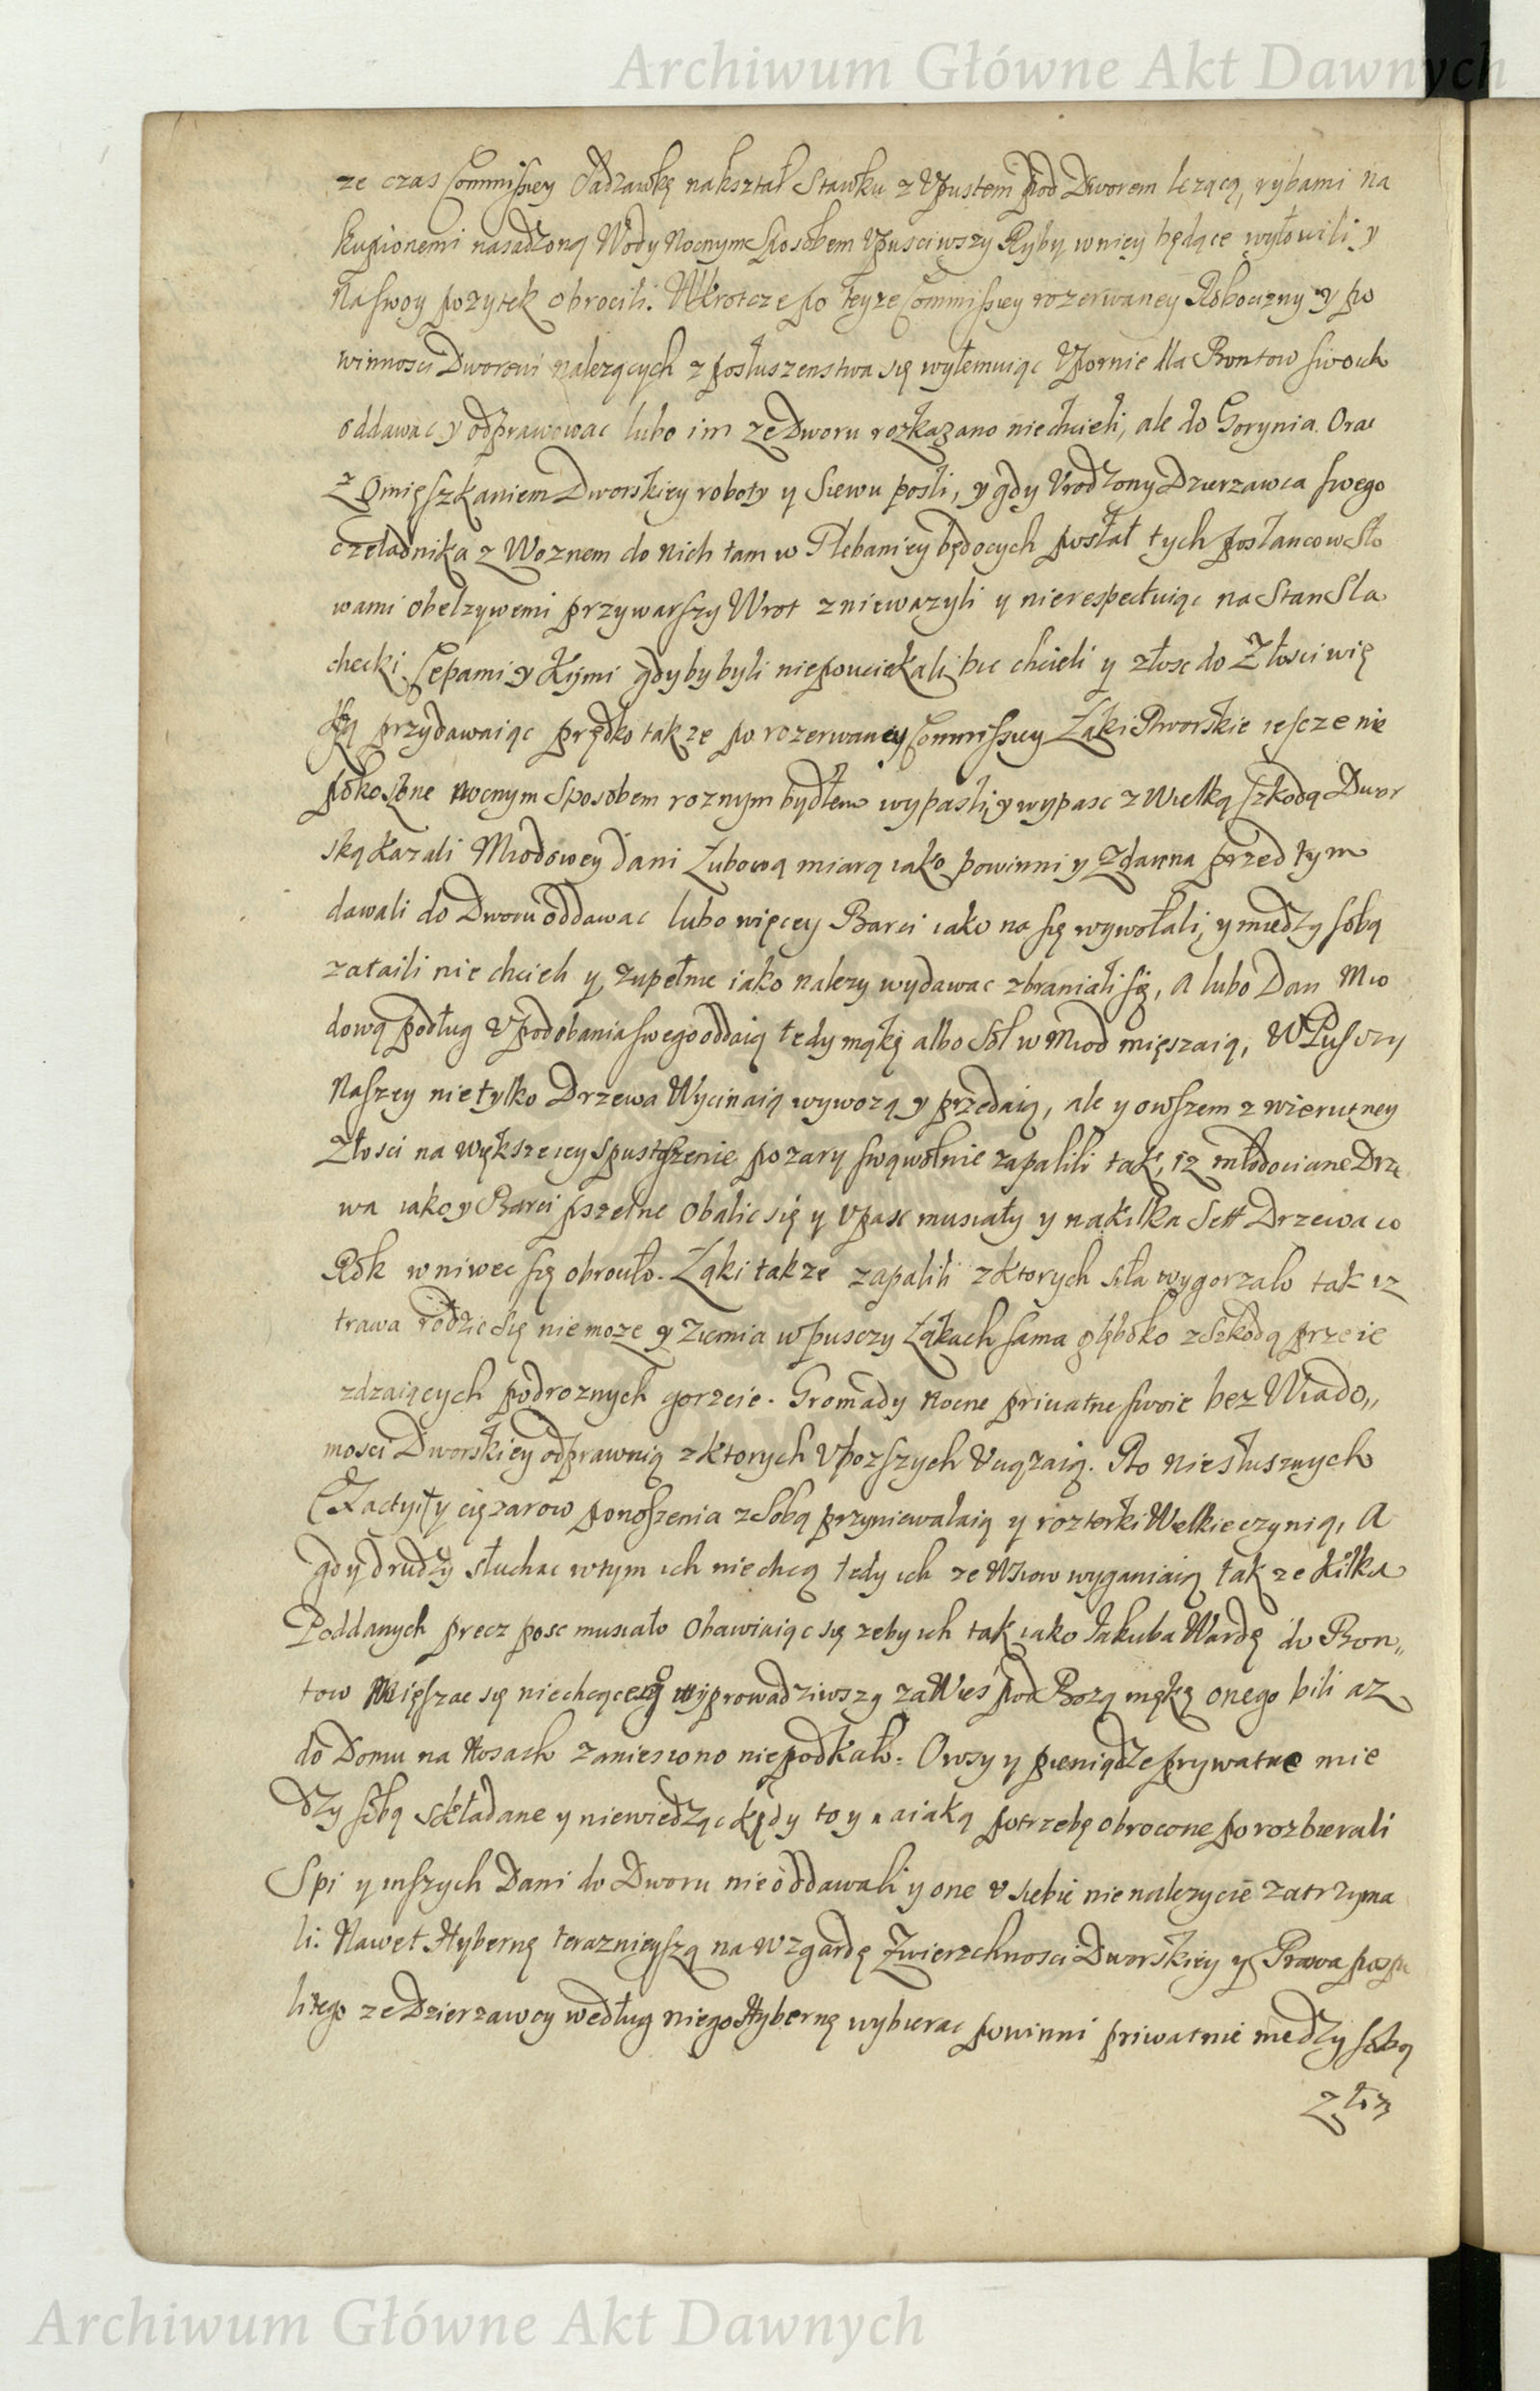 Archiwum Główne Akt Dawnych
ze czas Commissiey Sadzawkę nakształ Stawku z Vpustem pod Dworem lezącą, rybami na
kupionemi nasadzoną Wody Nocnym Sposobem Vpusciwszy Ryby wniey będące wyłowili y
Na swoy pozytek obrocili. Wkrotcze po teyze Commissiey rozerwaney Robocizny y po
winnosci Dworowi nalezących z posłuszenstwa się wyłamuiąc Vpornie dla Bontow swoich
oddawac y odprawowac lubo im ze Dworu rozkazano niechcieli, ale do Gorynia. Orac
z Omięszkaniem Dworskiey roboty y Siewu pośli, y gdy Vrodzony Dzierzawca swego
czeladnika z Woznem do nich tam w Plebaniey będocych posłał tych posłancow Sło
wami obelzywemi przywarszy Wrot zniewazyli y nierespectuiąc na Stan Sla
checki Cepami y Kijmi gdyby byli niepouciekali bic chcieli y złosc do Złosci wię
kszą przydawaiąc prędko takze po rozerwaney Commissiey Łąki Dworskie iescze nie
pokoszone Nocnym Sposobem roznym bydłem wypaśli, y wypasc z Wielką szkodą Dwor
ską kazali Miodowey dani Łubową miarą iako powinni y zdawna przed tym
dawali do Dworu oddawac lubo więcey Barci iako na się wywołali, y miedzy sobą
zataili nie chcieli y zupełnie iako nalezy wydawac zbraniali się, A lubo Dan Mio
dową podług Vpodobania swego oddaią tedy mąkę albo Sol w Miod mięszaią, W Pusczy
Naszey nie tylko Drzewa Wycinaią wywozą y przedaią, ale y owszem z wierutney
Złosci na większe iey Spustoszenie pozary swąwolnie zapalili tak, iz młodociane Drze
wa iako y Barci pszelne obalic się y vpasc musiały y na kilka Sett Drzewa co
Rok wniwec się obrociło. Łąki takze zapalili z ktorych siła wygorzało tak iz
trawa rodzic się nie moze y Ziemia w pusczy Łąkach sama głęboko z Szkodą przeie
zdzaiących podroznych gorzeie. Gromady Nocne priuatne swoie bez Wiado„
mosci Dworskiey odprawuią z ktorych Vbozszych Vciązaią. Do niesłusznych
Exactyi y cięzarow ponoszenia z Sobą przyniewalaią y rozterki Wielkie czynią, A
gdy drudzy słuchac w tym ich nie chcą tedy ich ze Wsiow wyganiaią tak ze kilka
Poddanych precz pojsc musiało obawiaiąc się zeby ich tak iako Jakuba Wardę do Bon„
tow Mięszac się niechcącego wyprowadziwszy za Wieś pod Bozą mękę onego bili az
do Domu na Nosach zaniesiono niepodkało. Owsy y pieniądze prywatne mie
dzy sobą składane y niewiedząc kędy to y na iaką potrzebę obrocone porozbierali
Spi y inszych Dani do Dworu nie oddawali y one v siebie nienalezycie zatrzyma
li. Nawet Hybernę teraznieyszą na wzgardę Zwierzchnosci Dworskiey y Prawa pospo
litego ze Dzierzawcy według niego Hybernę wybierac powinni priwatnie miedzy sobą
Archiwum Główne Akt Dawnych